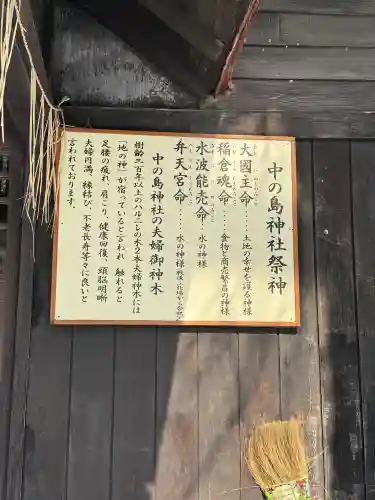 中の島神社祭神
大国主命……土地の幸せを護る神様
稲倉魂命……食物と商売繁昌の神様
水波能売命…水の神様
弁天宮命……水の神様
中の島神社の夫婦御神木
樹齢二百年以上のハルニレの木2本夫婦神木には
「地の神」が宿っていると言われ 触れると
足腰の疲れ、肩こり、健康回復、頭脳明晰
夫婦円満、縁結び、不老長寿等々に良いと
言われております。